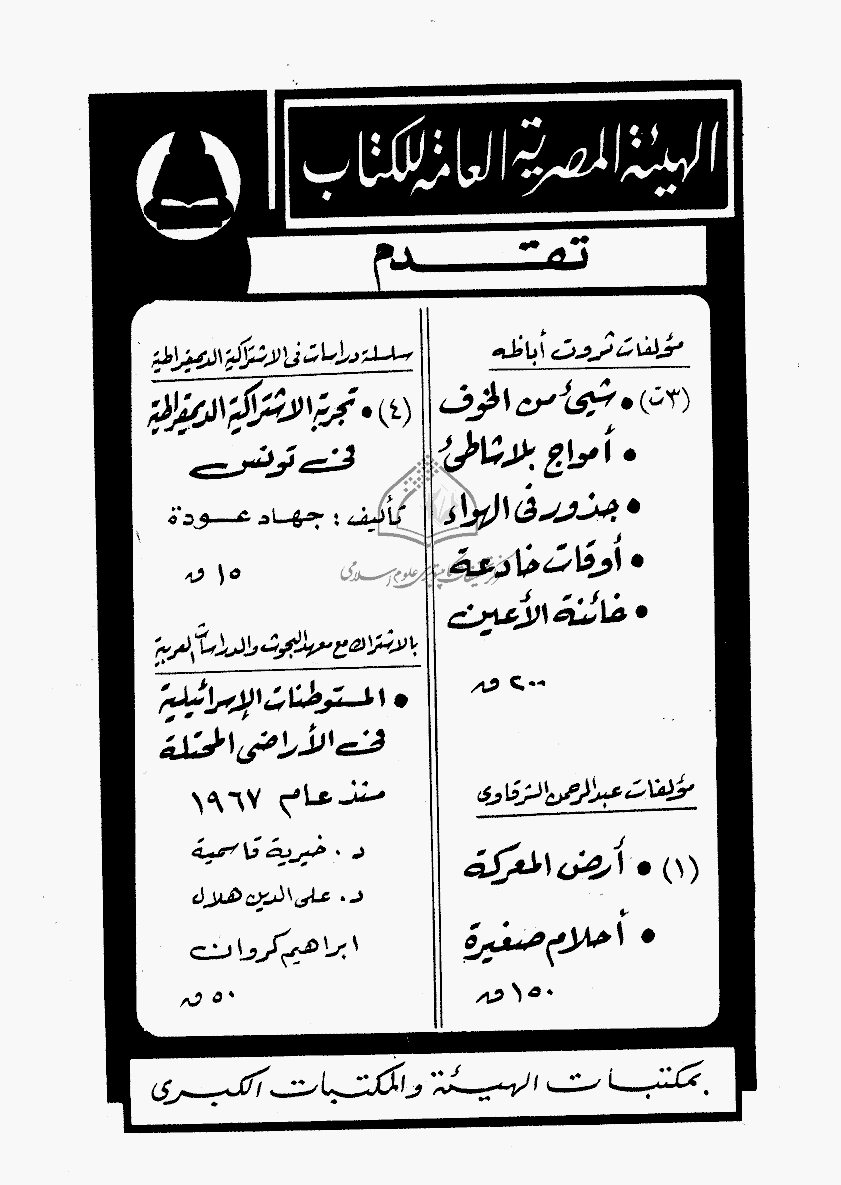 الهيئة المصرية العامة للكتاب
تقدم
مؤلفات ثروت أباظه
(٣ت) • شيئ من الخوف
• أمواج بلا شاطئ
• جذور فى الهواء
• أوقات خادعة
• خائنة الأعين
٢٠٠ ق
مؤلفات عبد الرحمن الشرقاوى
(١) • أرض المعركة
• أحلام صغيرة
١٥٠ ق
سلسلة دراسات فى الاشتراكية الديمقراطية
(٤) • تجربة الاشتراكية الديمقراطية
فى تونس
تأليف : جهاد عودة
١٥ ق
بالاشتراك مع معهد البحوث والدراسات العربية
• المستوطنات الإسرائيلية
فى الأراضى المحتلة
منذ عام ١٩٦٧
د . خيرية قاسمية
د . على الدين هلال
ابراهيم كروان
٥٠ ق
بمكتبات الهيئة والمكتبات الكبرى